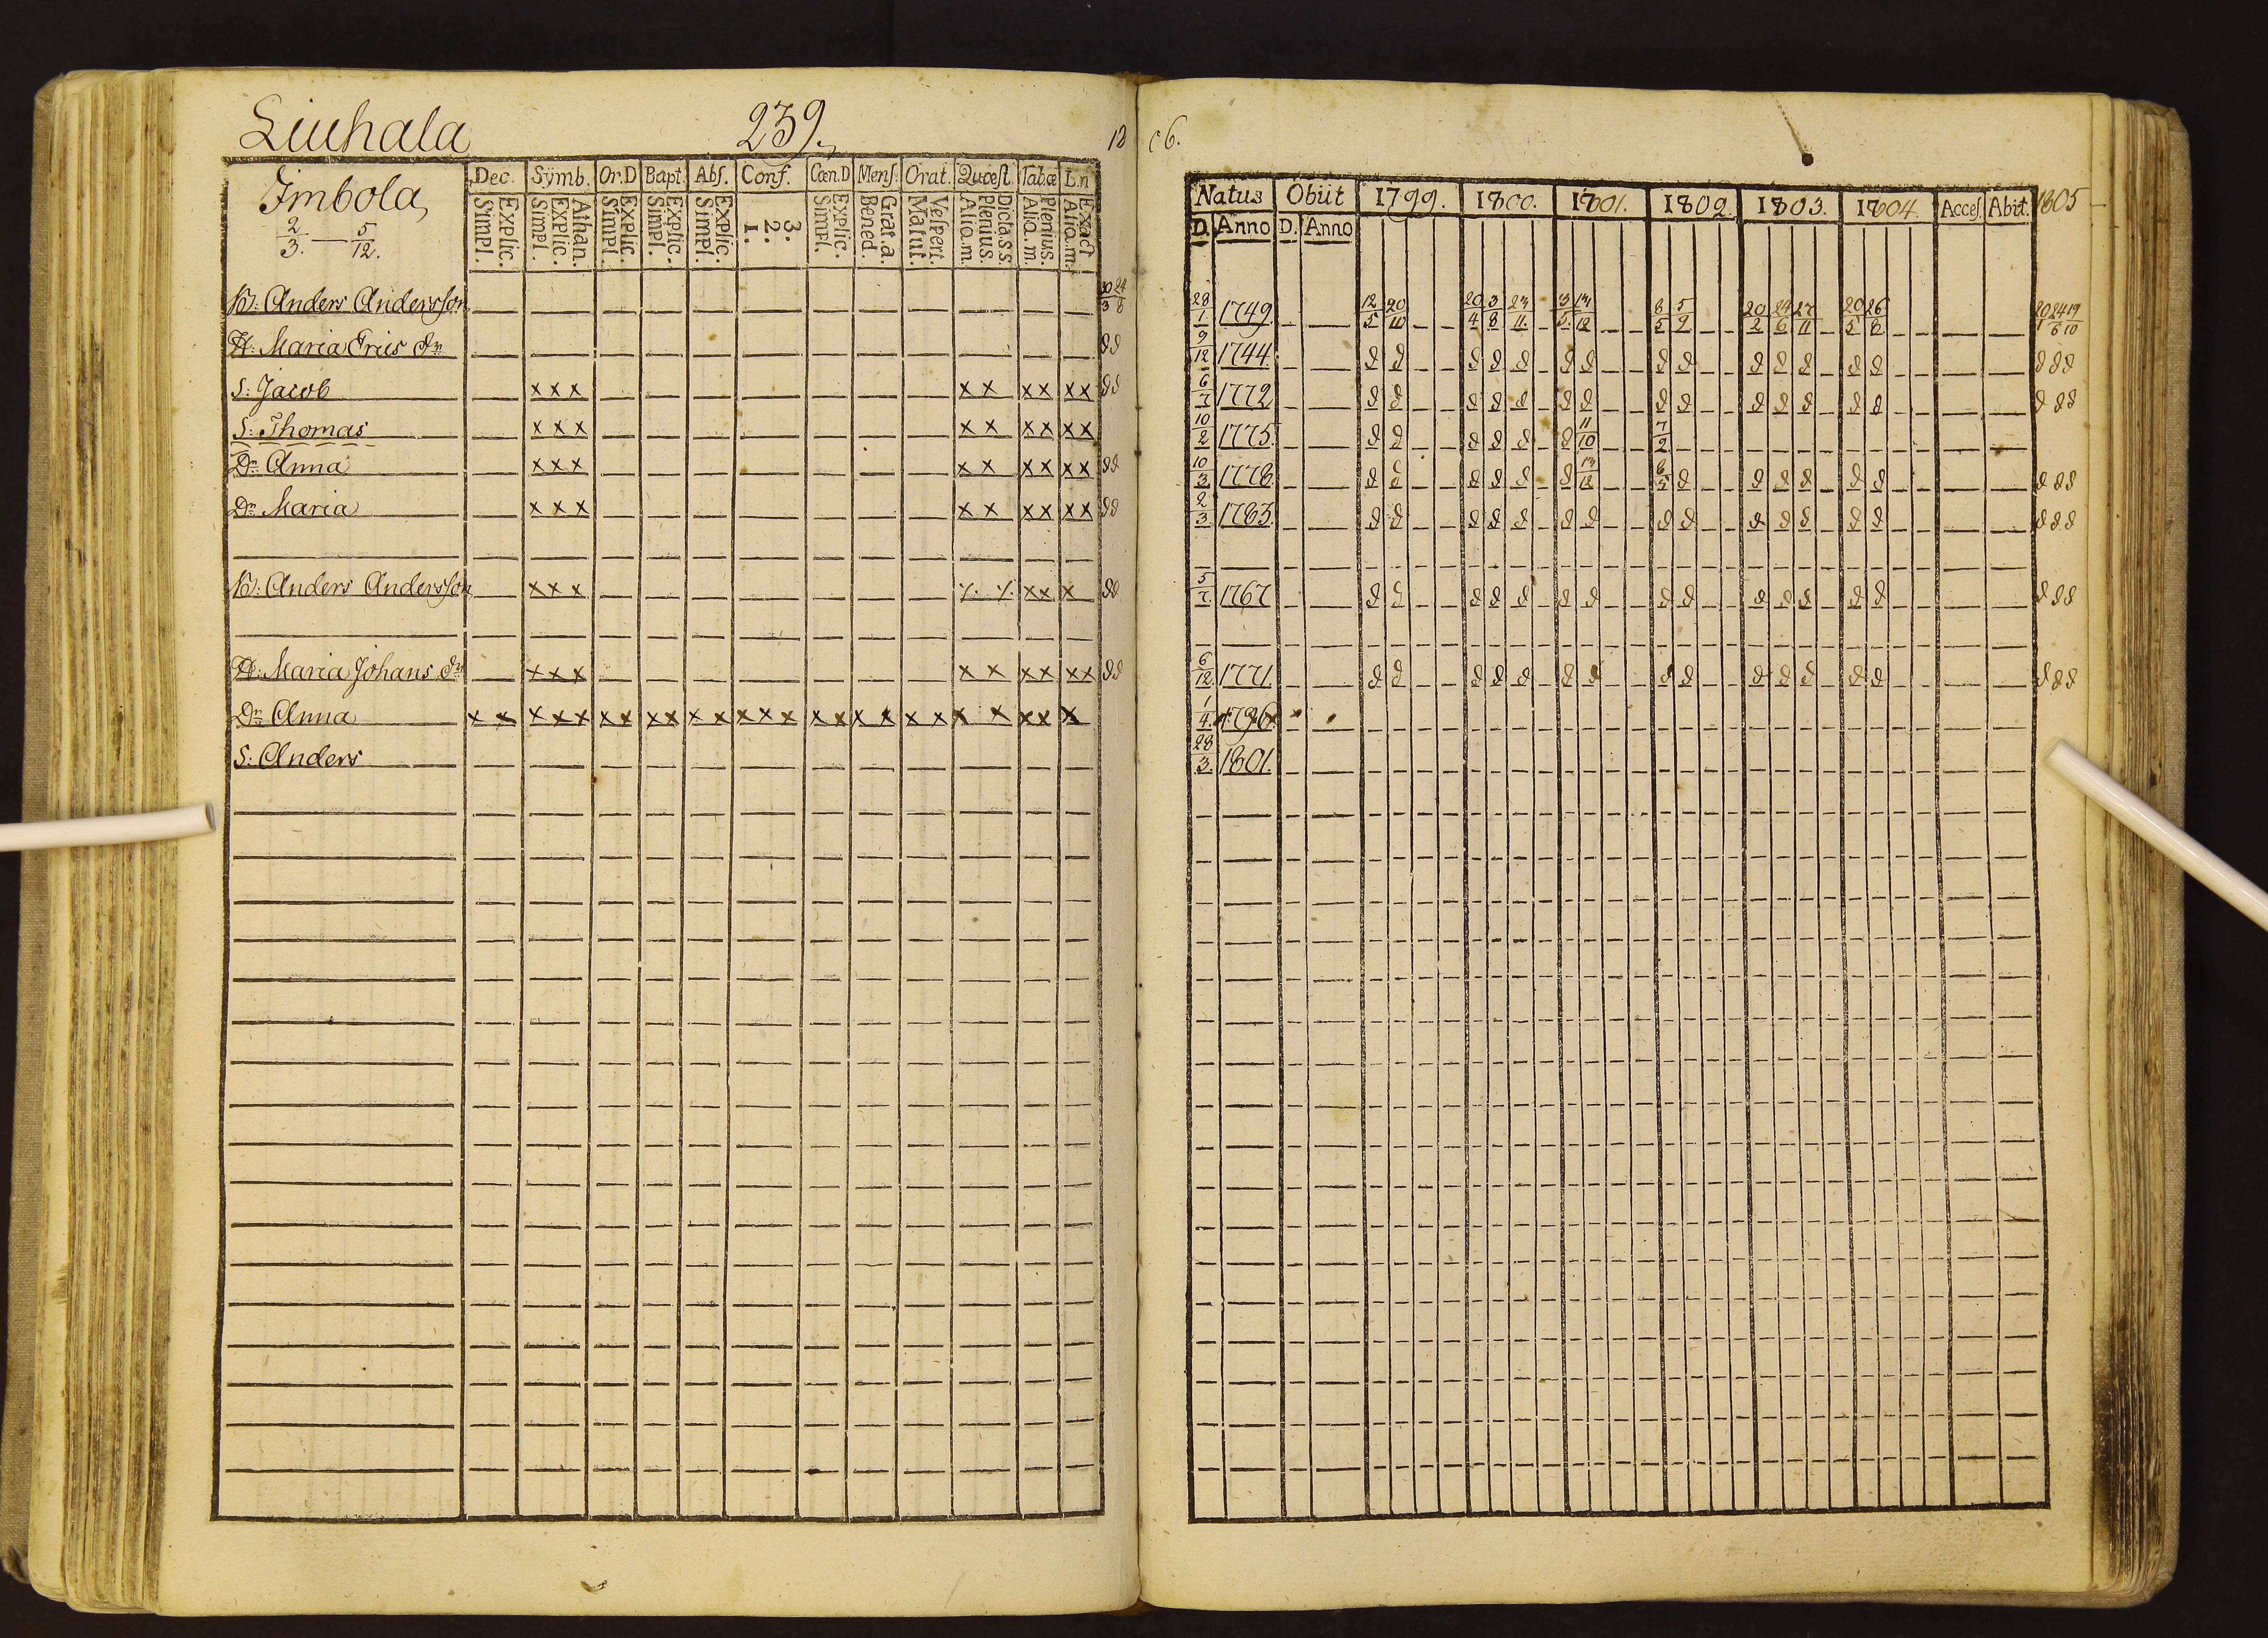 Liuhala 239.
Imbola,
2/3. — 5/12.
Dec. Symb. Or.D Bapt. Abs. Conf. Cœn.D Mens. Orat. Quæst. Tabæ L.n
Explic. Simpl. Athan. Explic. Simpl. Explic. Simpl. Explic. Simpl. Explic. Simpl. 3. 2. 1. Explic. Simpl. Grat.a. Bened. Vespert. Matut. Dicta s.s. Plenius. Alio.m. Plenius. Alio.m. Exact Alio.m.
B: Anders Andersson
H: Maria Erics dr
S: Jacob x x x x x x x x x
S: Thomas x x x x x x x x x
Dr Anna x x x x x x x x x
Dr Maria x x x x x x x x x
B: Anders Andersson x x x x x x
H: Maria Johans dr x x x x x x x x x
Dr Anna x x x x x x x x x x x x x x x x x x x x x x x x x x
S: Anders
18 06.
Natus Obiit 1799. 1800. 1801. 1802. 1803. 1804. Acces. Abit. 1805
D. Anno D. Anno
28/1 1749. 12/5 20/10 20/4 3/8 23/11 3/5 13/12 8/5 5/9 20/2 24/6 27/11 20/5 26/8
9/12 1744.
6/7 1772
10/2 1775. 11/10 7/2
10/3 1778. 13/12 8/5
2/3 1783.
5/7 1767
6/12 1771.
1/4 1796
28/3 1801.